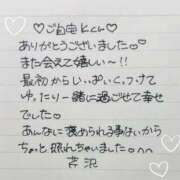 ♡ご自宅Kくん♡
ありがとうございました♡
また会えて嬉しい〜!!
最初からいっぱいくっつけて
ゆったり一緒に過ごせて幸せ
でした♡
あんなに褒められる事ないから
ちょっと照れちゃいました♡^^
芹沢